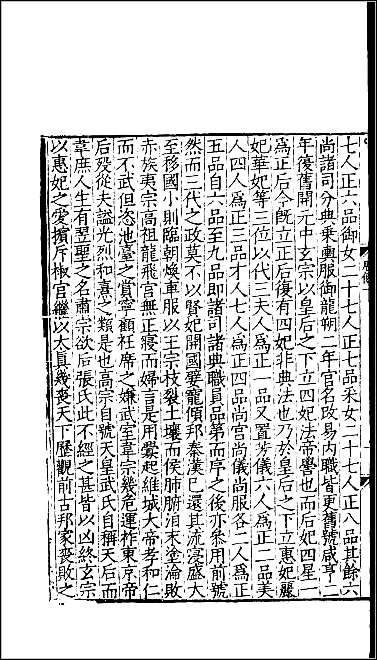 七人正六品御女二十七人正七品采女二十七人正八品其餘六
尚諸司分典乘輿服御龍朔二年官名改易内職皆更舊號咸亨二
年復舊開元中玄宗以皇后之下立四妃法帝嚳也而后妃四星一
為正后今既立正后復有四妃非典法也乃於皇后之下立惠妃麗
妃華妃等三位以代三夫人為正一品又置芳儀六人為正二品美
人四人為正三品才人七人為正四品尚宫尚儀尚服各二人為正
五品自六品至九品即諸司諸典職員品第而序之後亦參用前號
然而三代之政莫不以賢妃開國嬖寵傾邦秦漢已還其流寖盛大
至移國小則臨朝煥車服以王宗枝裂土壤而侯肺腑洎末塗淪敗
赤族夷宗高祖龍飛宫無正寢而婦言是用釁起維城大帝孝和仁
而不武但恣池臺之賞寧顧衽席之嫌武室韋宗幾危運祚東京帝
后歿從夫謚光烈和熹之類是也高宗自號天皇武氏自稱天后而
韋庶人生有翌聖之名肅宗欲后張氏此不經之甚皆以凶終玄宗
以惠妃之愛擯斥椒宫繼以太真幾喪天下歷觀前古邦家喪敗之